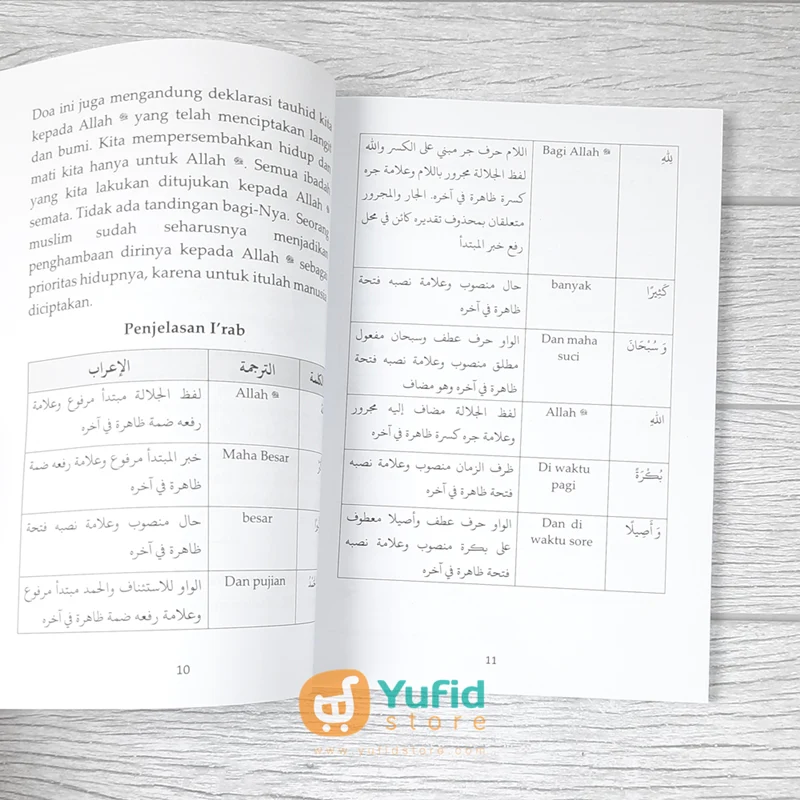 Doa ini juga mengandung deklarasi tauhid kita
kepada Allah ﷻ yang telah menciptakan langit
dan bumi. Kita mempersembahkan hidup dan
mati kita hanya untuk Allah ﷻ. Semua ibadah
yang kita lakukan ditujukan kepada Allah ﷻ
semata. Tidak ada tandingan bagi-Nya. Seorang
muslim sudah seharusnya menjadikan
penghambaan dirinya kepada Allah ﷻ sebagai
prioritas hidupnya, karena untuk itulah manusia
diciptakan.
Penjelasan I'rab
الكلمة
الترجمة
الإعراب
Allah ﷻ
لفظ الجلالة مبتدأ مرفوع وعلامة
رفعه ضمة ظاهرة في آخره
Maha Besar
خبر المبتدأ مرفوع وعلامة رفعه ضمة
ظاهرة في آخره
besar
حال منصوب وعلامة نصبه فتحة
ظاهرة في آخره
Dan pujian
الواو للاستئناف والحمد مبتدأ مرفوع
وعلامة رفعه ضمة ظاهرة في آخره
10
لِلَّهِ
Bagi Allah ﷻ
اللام حرف جر مبني على الكسر والله
لفظ الجلالة مجرور باللام وعلامة جره
كسرة ظاهرة في آخره. الجار والمجرور
متعلقان بمحذوف تقديره كائن في محل
رفع خبر المبتدأ
كَثِيرًا
banyak
حال منصوب وعلامة نصبه فتحة
ظاهرة في آخره
وَ سُبْحَانَ
Dan maha
suci
الواو حرف عطف وسبحان مفعول
مطلق منصوب وعلامة نصبه فتحة
ظاهرة في آخره وهو مضاف
اللهِ
Allah ﷻ
لفظ الجلالة مضاف إليه مجرور
وعلامة جره كسرة ظاهرة في آخره
بُكْرَةً
Di waktu
pagi
ظرف الزمان منصوب وعلامة نصبه
فتحة ظاهرة في آخره
وَ أَصِيلًا
Dan di
waktu sore
الواو حرف عطف وأصيلا معطوف
على بكرة منصوب وعلامة نصبه
فتحة ظاهرة في آخره
11
Yufid
store
www.yufidstore.com